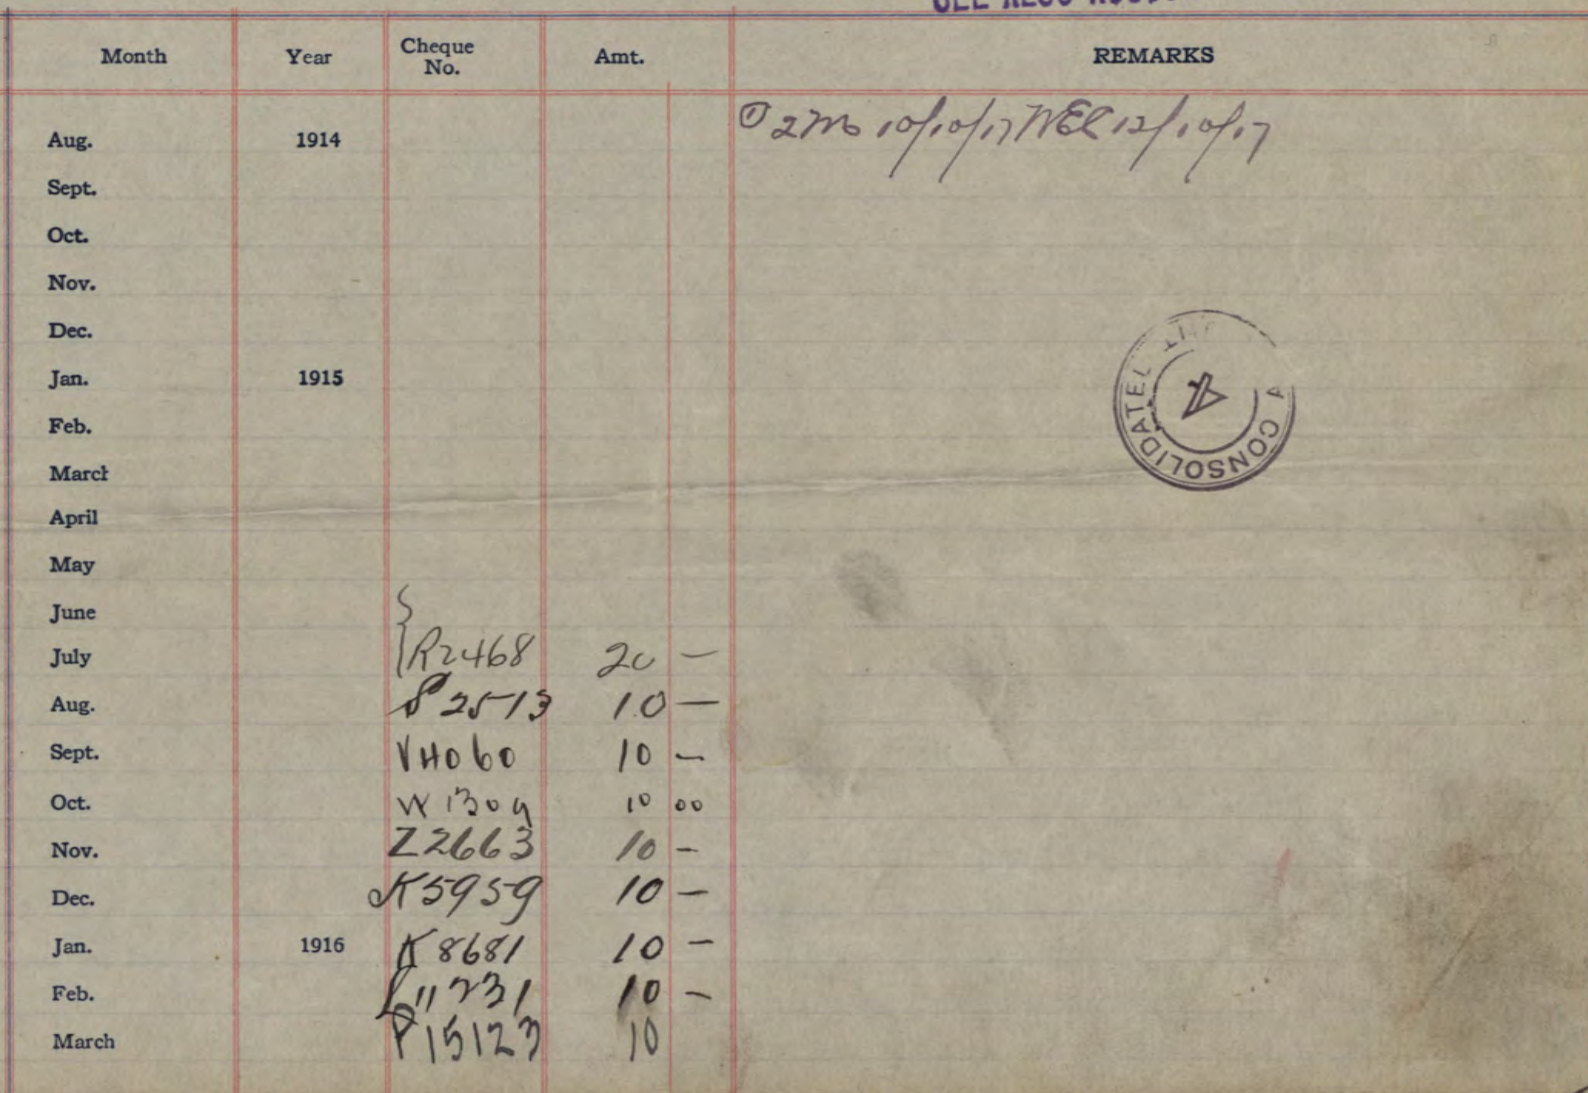 SEE ALSO
Month Year Cheque No. Amt. REMARKS
Aug. 1914 10/10/17 12/10/17
Sept.
Oct.
Nov.
Dec.
Jan. 1915
Feb.
March
April
May
June
July R2468 20 —
Aug. S2513 10 —
Sept. V4060 10 —
Oct. W1309 10 00
Nov. Z2663 10 —
Dec. K5959 10 —
Jan. 1916 K8681 10 —
Feb. L11231 10 —
March P15123 10
A CONSOLIDATED